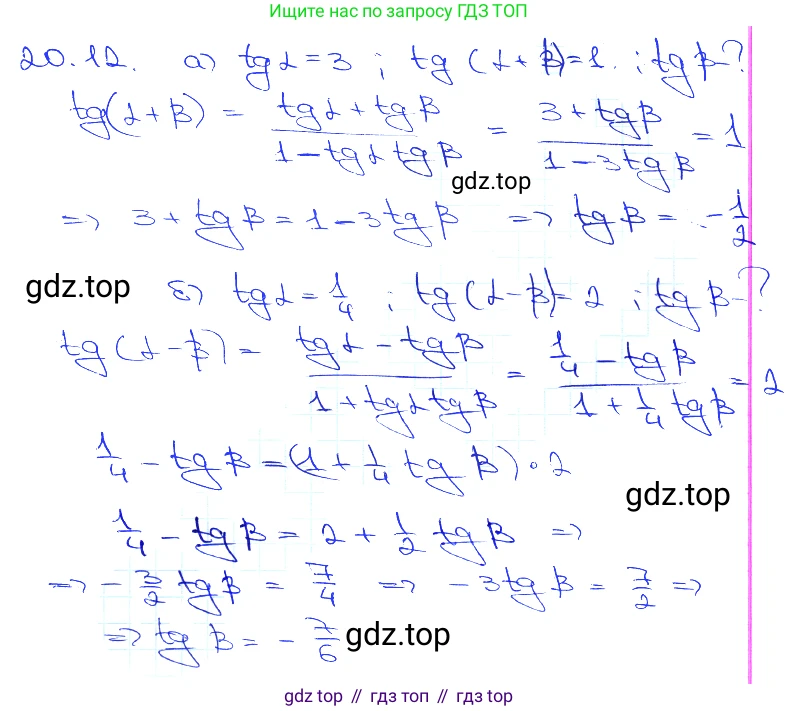 Ищите нас по запросу ГДЗ ТОП
20.12. а) tg α = 3 ; tg (α + β) = 1. ; tg β - ?
tg(α + β) = (tg α + tg β)/(1 - tg α tg β) = (3 + tg β)/(1 - 3 tg β) = 1
gdz.top
=> 3 + tg β = 1 - 3 tg β => tg β = - 1/2
gdz.top
б) tg α = 1/4 ; tg (α - β) = 2 ; tg β - ?
tg (α - β) = (tg α - tg β)/(1 + tg α tg β) = (1/4 - tg β)/(1 + 1/4 tg β) = 2
1/4 - tg β = (1 + 1/4 tg β) · 2
gdz.top
1/4 - tg β = 2 + 1/2 tg β =>
=> - 3/2 tg β = 7/4 => - 3 tg β = 7/2 =>
=> tg β = - 7/6
gdz.top
gdz top // гдз топ // gdz top